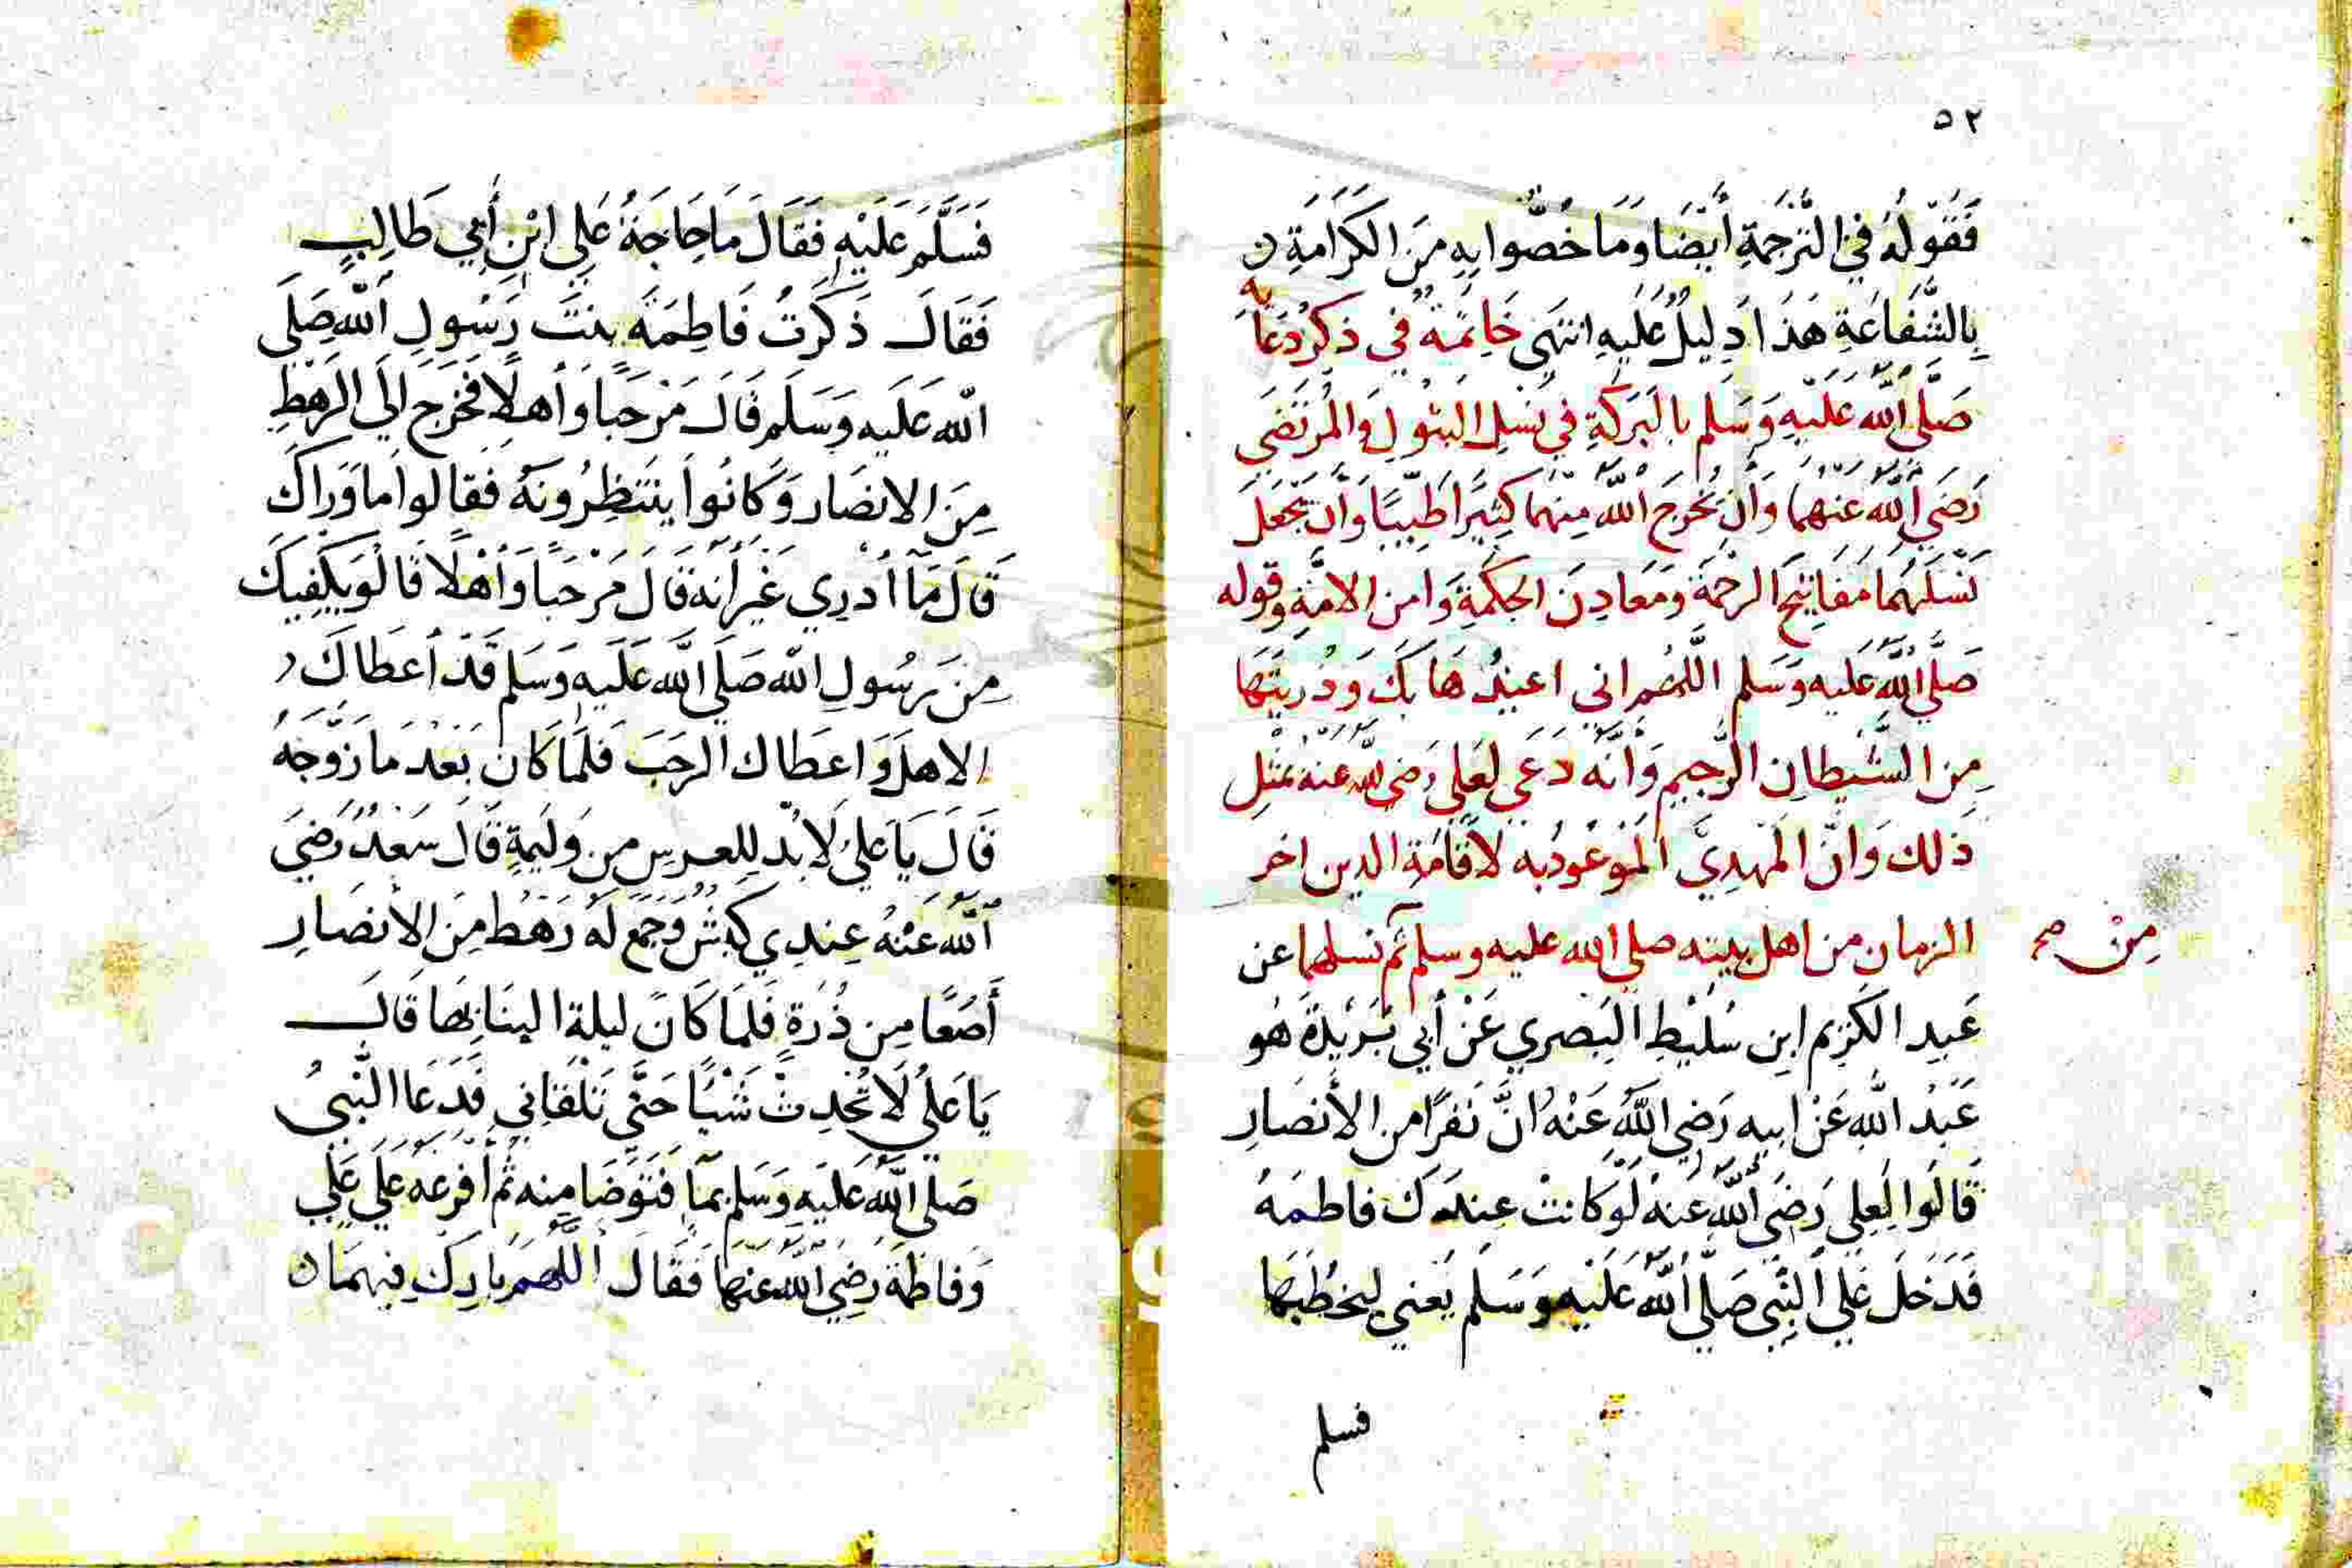 ٥٢
فَقَوْلُهُ فِي التَّرْجَمَةِ أَيْضًا وَمَا خُصُّوا بِهِ مِنَ الكَرَامَةِ
بِالشَّفَاعَةِ هَذَا دَلِيلٌ عَلَيْهِ انتَهَى خَاتِمَةٌ فِي ذِكْرُ دُعَائِهِ
صَلَّى اللَّهُ عَلَيْهِ وَسَلم بِالبَرَكَةِ فِي نَسْلِ البَتُولِ وَالمُرْتَضَى
رَضِيَ اللَّهُ عَنْهُمَا وَأن يُخْرِجَ اللَّهُ مِنْهُمَا كَثِيرًا طَيِّبًا وَأن يَجْعَلَ
نَسْلَهُمَا مَفَاتِيحَ الرحْمَةِ وَمَعَادِنَ الحِكْمَةِ وَامن الامَّةِ وقوله
صَلَّى اللَّهُ عَلَيْهِ وَسَلم اللَّهُم اني اعيذُهَا بِكَ وَذُريَّتَهَا
مِن الشَّيْطَانِ الرَّجِيمِ وَأنَّهُ دَعَى لِعَلى رَضي الله عنه بمثْلِ
ذلك وَأنَّ المَهْدِيَّ المَوْعُودُ به لاقَامَةِ الدين اخر
الزمان من اهل بيته صلى الله عليه وسلم ثم نسلهما عن
مِنْ صح
عَبدِ الكَرِيم ابن سُلَيْطِ البَصري عَنْ أَبي بُرَيْدَةَ هُو
عَبْدُ اللهِ عَنْ ابيه رَضي اللَّهُ عَنْهُ انَّ نَفَرًا من الأَنصَارِ
قَالُوا لِعلي رَضي اللَّهُ عَنهُ لَوْ كَانتْ عِندَكَ فاطمَةُ
فَدَخَلَ عَلَى النَّبِّي صَلَّى اللَّهُ عَلَيْهِ وَسَلم يَعني ليخطُبَهَا
فسلم
فَسَلَّمَ عَلَيْهِ فَقَالَ مَا حَاجَةُ عَلِي ابْنِ أَبِي طَالِبٍ
فَقَالَ ذَكَرتُ فَاطِمَةَ بنتَ رَسُولِ اللَّهِ صَلَى
اللَّه عَلَيه وَسَلم قَالَ مَرْحَبًا وَأَهلًا فَخَرَج الَى الرَهْطِ
مِنَ الانصَار وَكَانُوا يَنتَظِرُونَهُ فَقَالوا مَا وَرَاكَ
قَالَ مَا أدْرِي غَيْرَ أنهُ قَالَ مَرْحَبًا وَأَهْلًا قَالُو يَكْفِيكَ
مِنَ رَسُولِ اللَّه صَلَى اللَّه عَلَيه وَسَلم قَدْ أَعطَاكَ
الاهلَ وَاعطَاك الرحَبَ فَلَمَّا كَانَ بَعْدَ مَا زَوَّجَهُ
قَالَ يَا عَلي لَابُد لِلعرسِ مِن وَليمَةٍ قَالَ سَعْدٌ رَضيَ
اللَّهُ عَنْهُ عِندِي كَبشٌ وَجَمعَ لَهُ رَهْطٌ مِنَ الأَنصَارِ
أَصعًا مِن ذُرَةٍ فَلَمَا كَانَ ليلة البِنَا بِهَا قَالَ
يَا عَلي لَا تُحْدِثْ شَيْئًا حَتَّى تَلْقَانِي فَدَعَا النَّبيُ
صَلى اللَّه عَلَيهِ وَسَلم بمآٍ فَتَوَضَا مِنه ثُم أَفْرَغَهُ عَلَى عَلِي
وَفاطمَة رَضِي اللَّه عَنهمَا فَقَالَ اللَّهُمَّ بَارِكْ فيهمَا